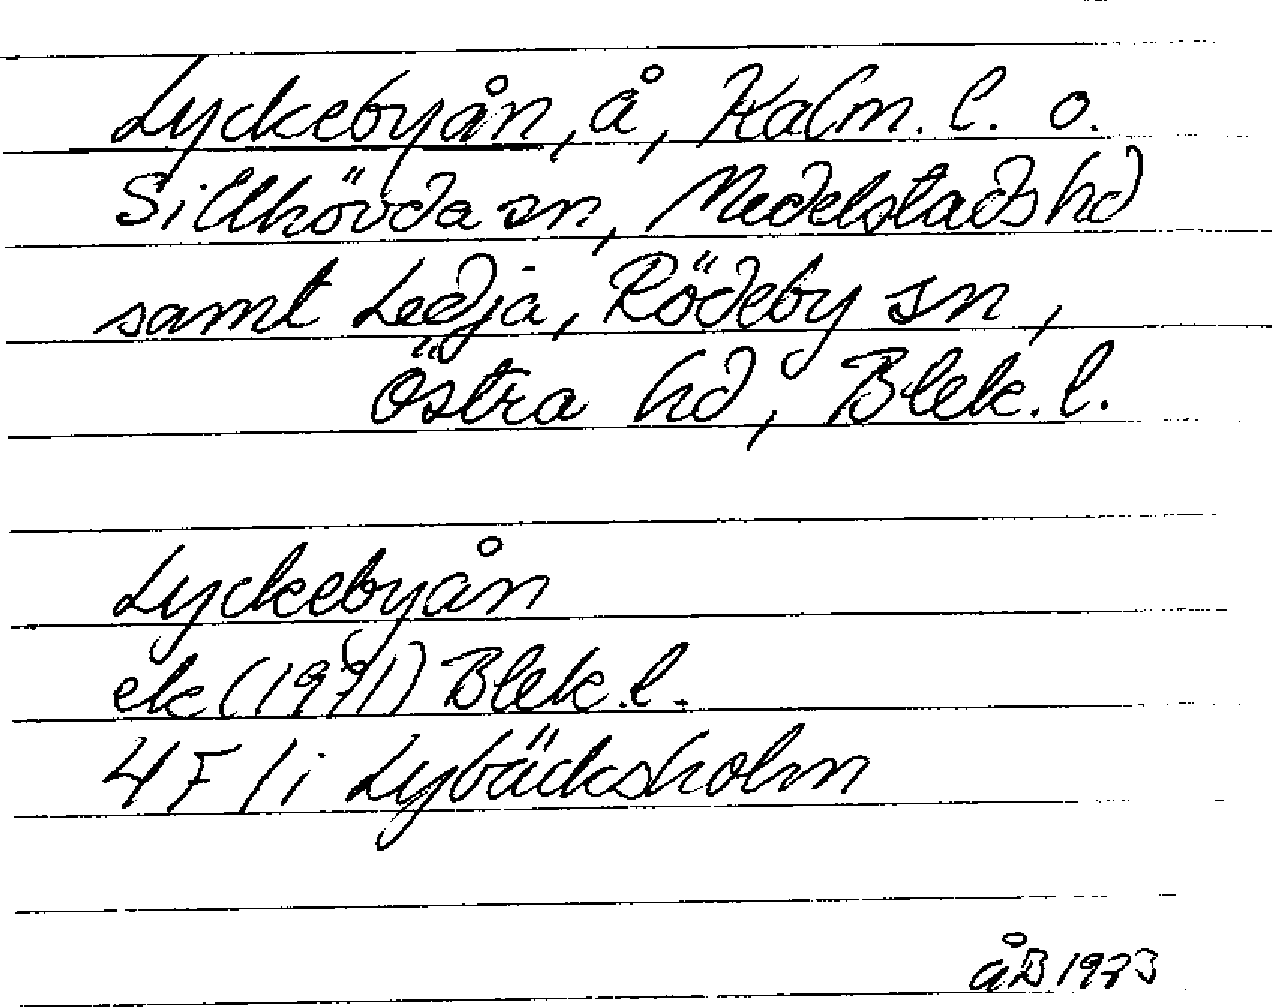 Lyckebyån, å, Kalm. l. o.
Sillhövda sn, Medelstads hd
samt Ledja, Rödeby sn,
Östra hd, Blek. l.
Lyckebyån
ek (1971) Blek. l.
4 F 1i Lybäcksholm
åB 1973